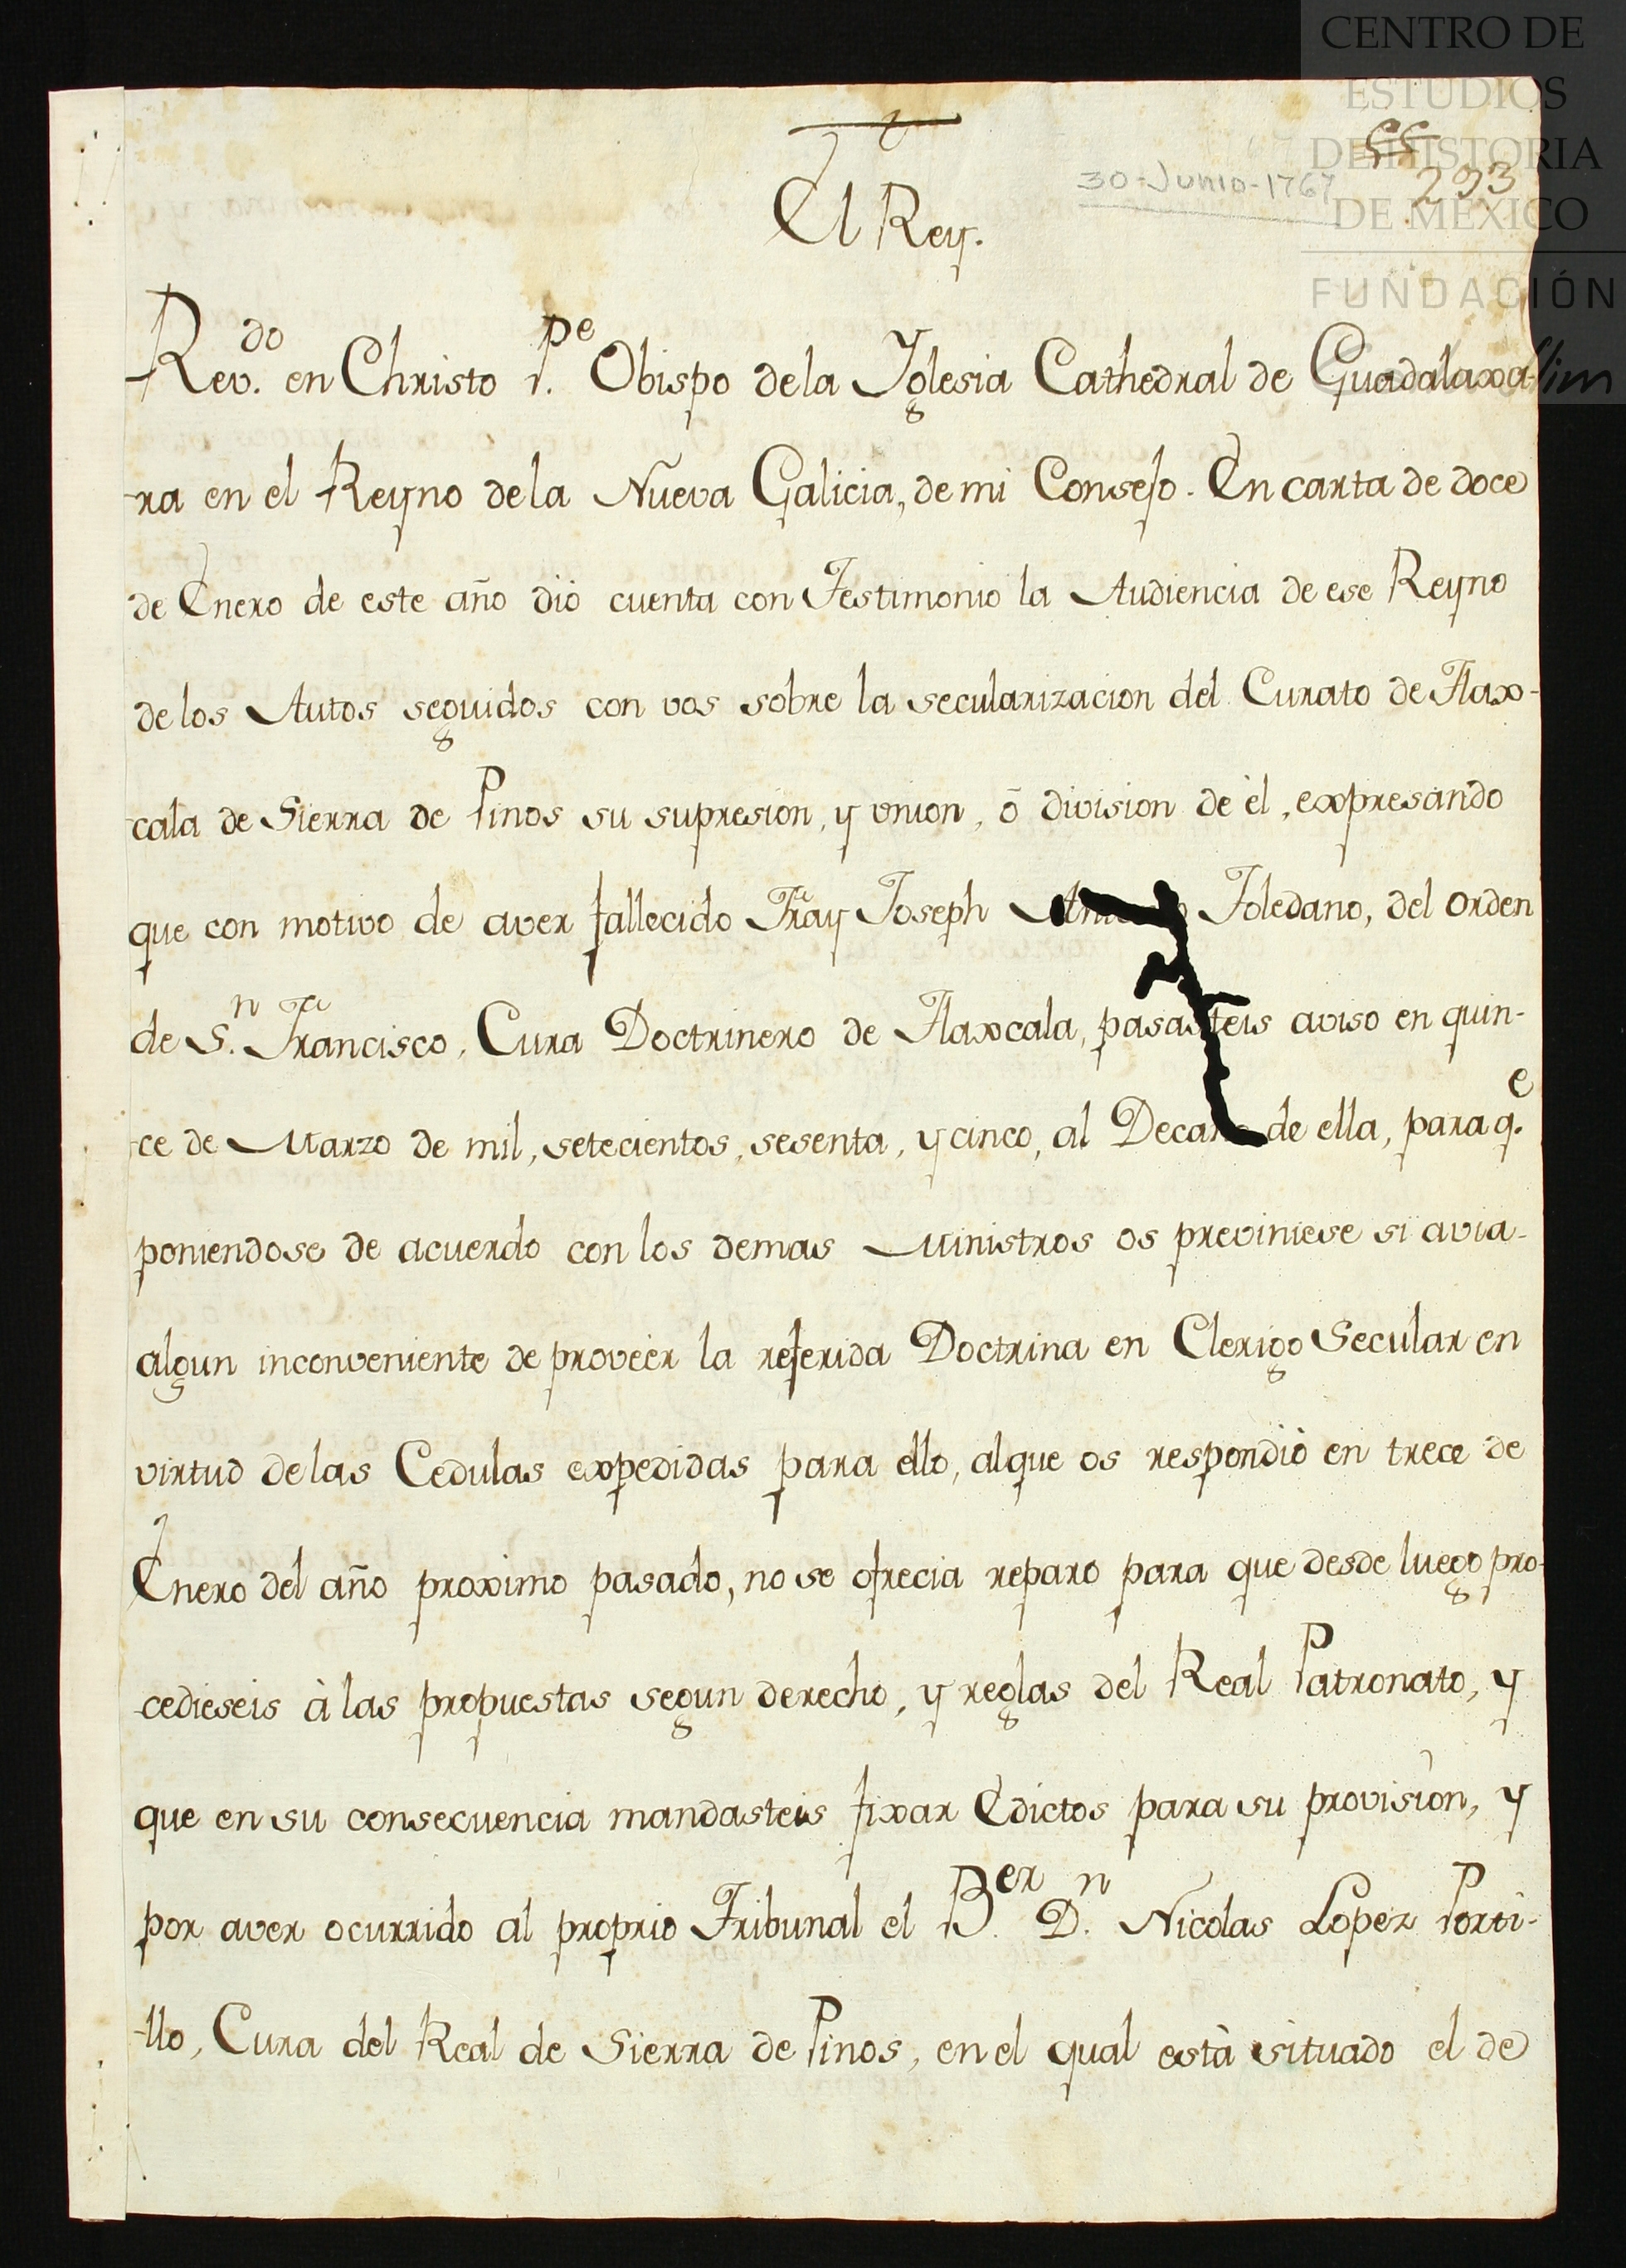 CENTRO DE
ESTUDIOS
DE HISTORIA
DE MÉXICO
FUNDACIÓN
Slim
55
293
30-Junio-1767
El Rey.
Rev.do en Christo P.pe Obispo dela Yglesia Cathedral de Guadalaxa-
-ra en el Reyno dela Nueva Galicia, de mi Consejo. En carta de doce
de Enero de este año diò cuenta con Testimonio la Audiencia de ese Reyno
de los Autos seguidos con vos sobre la secularizacion del Curato de Tlax-
-cala de Sierra de Pinos su supresion, y vnion, ò division de èl, expresando
que con motivo de aver fallecido Fray Joseph Toledano, del orden
de S.n Francisco, Cura Doctrinero de Tlaxcala, pasasteis aviso en quin-
-ce de Marzo de mil, setecientos, sesenta, y cinco, al Decano de ella, para q.e
poniendose de acuerdo con los demas Ministros os previniese si avia
algun inconveniente de proveèr la referida Doctrina en Clerigo Secular en
virtud delas Cedulas expedidas para ello, alque os respondiò en trece de
Enero del año proximo pasado, no se ofrecia reparo para que desde luego pro-
-cedieseis à las propuestas segun derecho, y reglas del Real Patronato, y
que en su consecuencia mandasteis fixar Edictos para su provision, y
por aver ocurrido al proprio Tribunal el B.er D.n Nicolas Lopez Porti-
-llo, Cura del Real de Sierra de Pinos, en el qual està situado el de